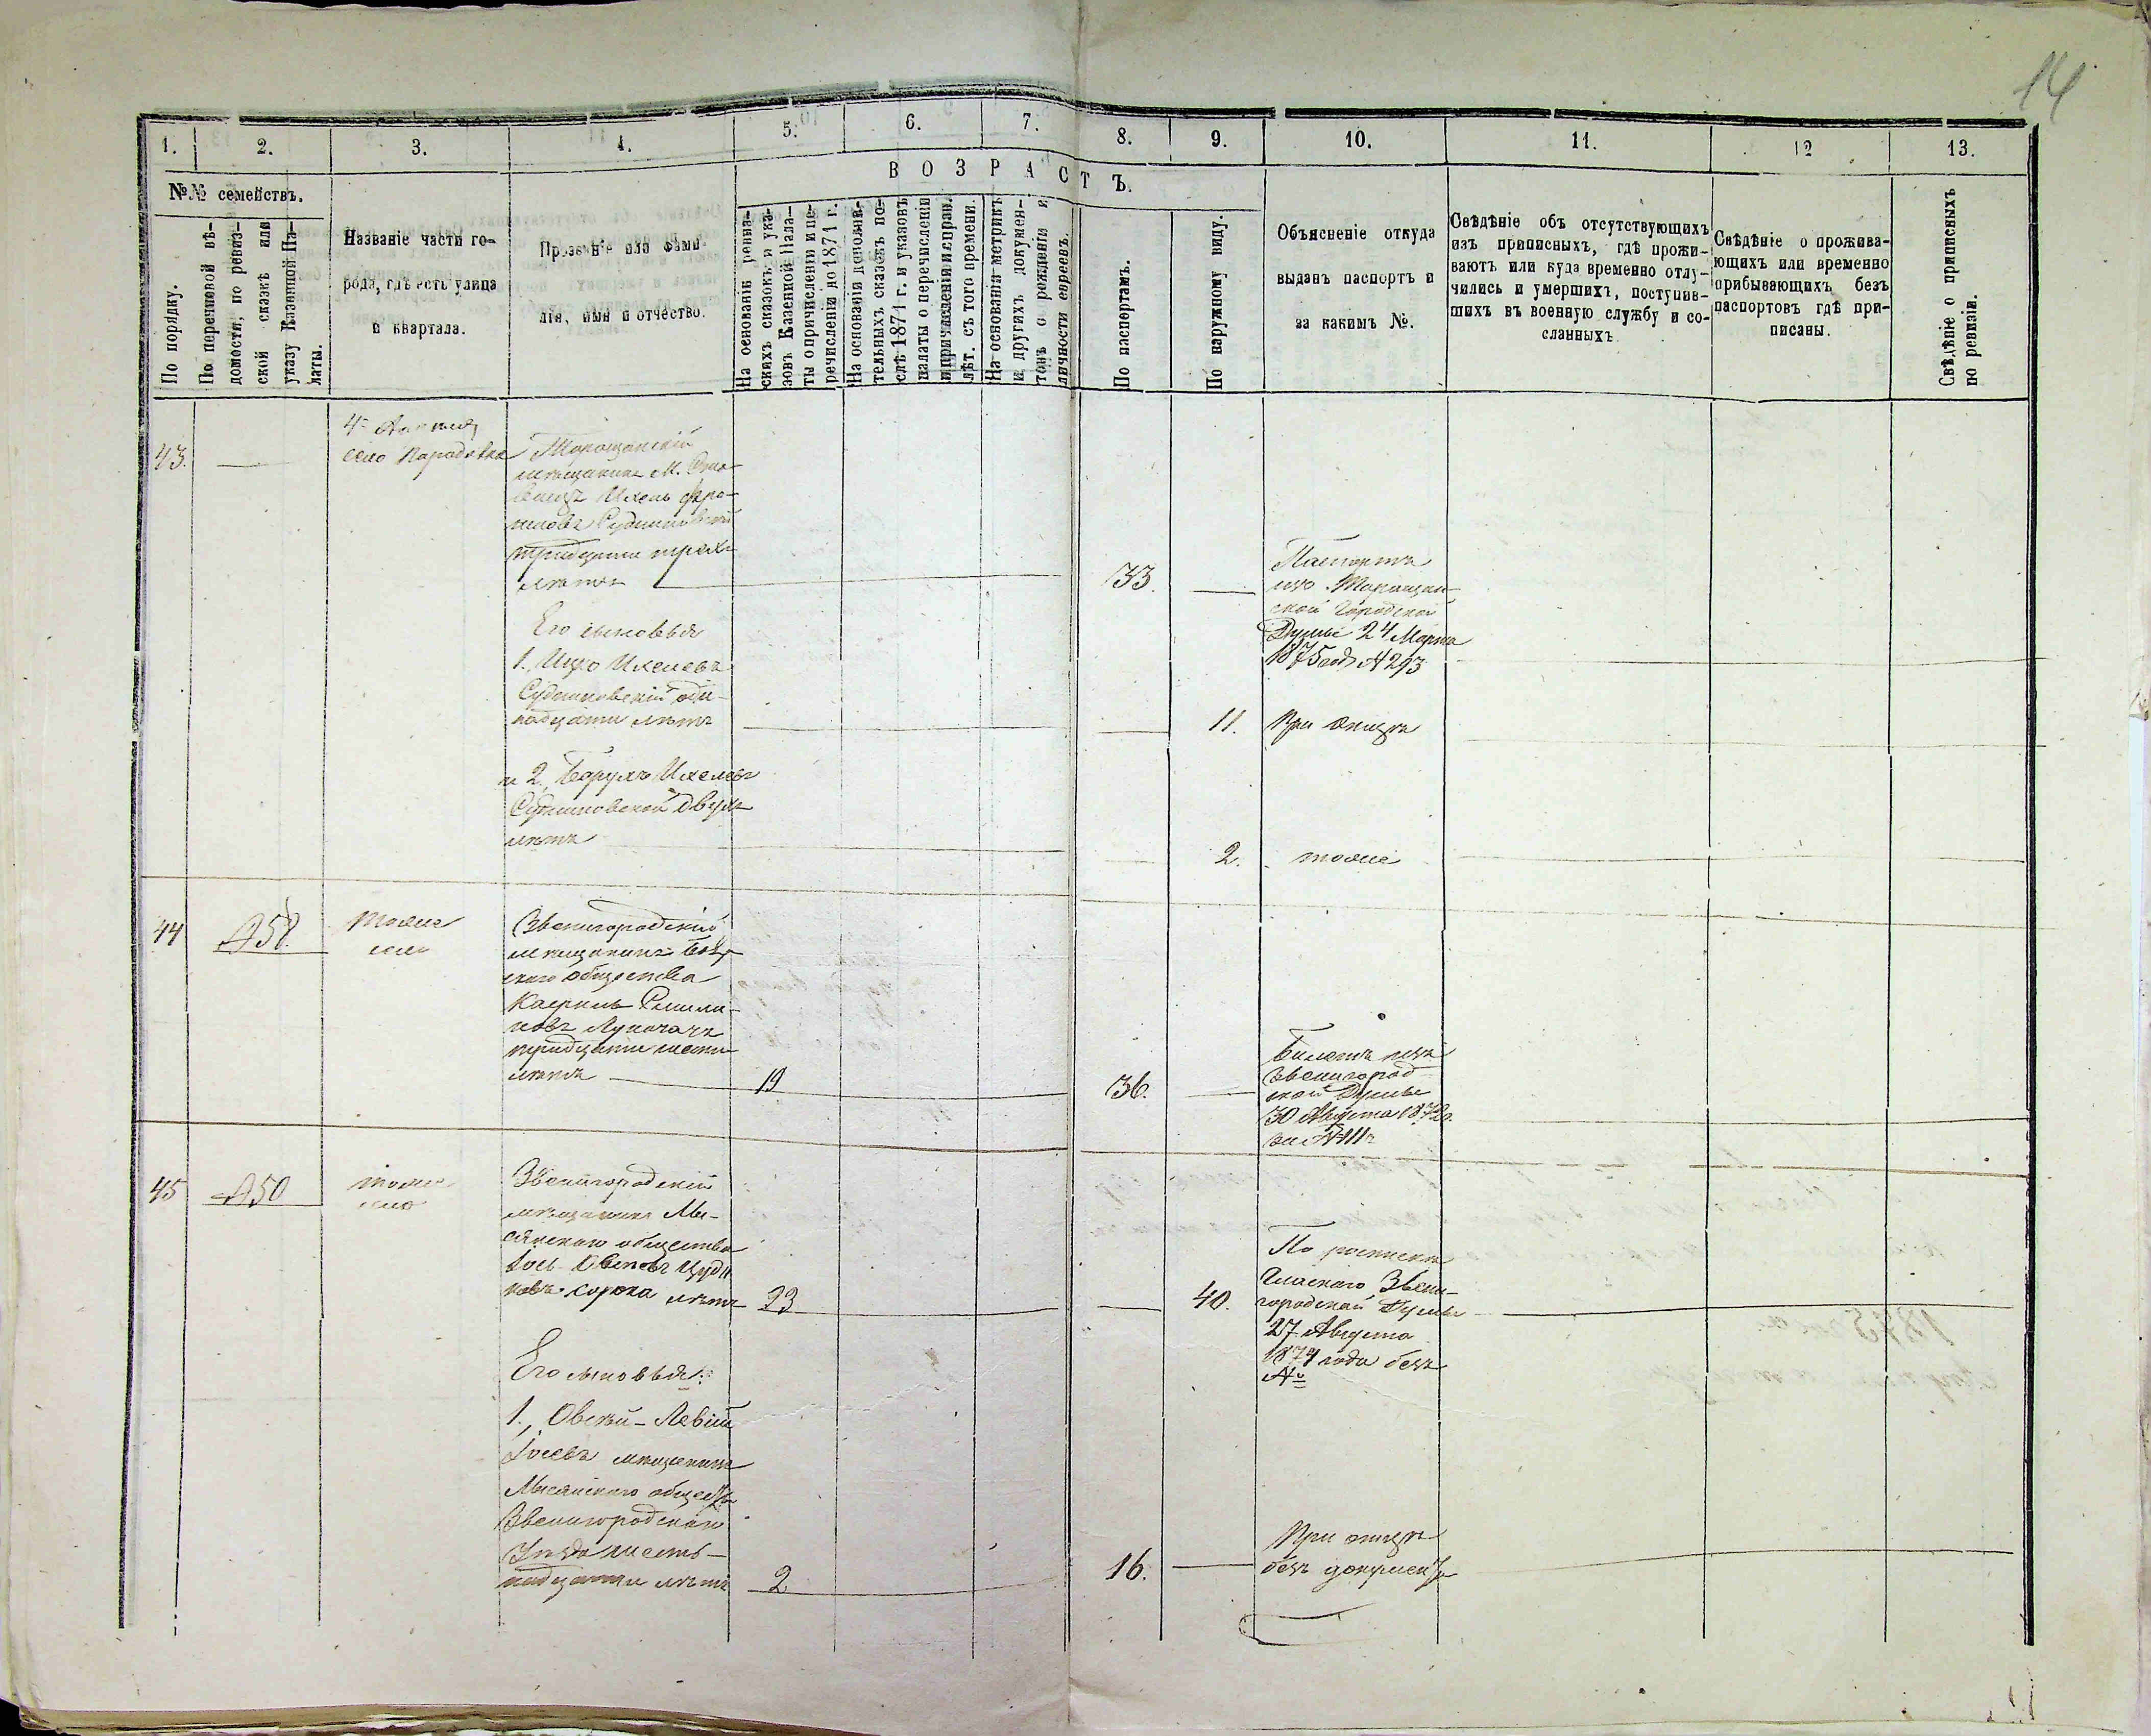 14
1.
2.
3.
4.
5.
6.
7.
8.
9.
10.
11.
12
13.
№№ семействъ.
ВОЗРАСТЪ.
По порядку.
По перечневой вѣ-
домости, по ревиз-
ской сказкѣ или
указу Казенной Па-
латы.
Названіе части го-
рода, гдѣ есть улица
и квартала.
Прозваніе или фами-
лія, имя и отчество.
На основаніи ревиз-
скихъ сказокъ и ука-
зовъ Казенной Пала-
ты о причисленіи и пе-
речисленіи до 1871 г.
На основаніи дополни-
тельныхъ сказокъ по-
слѣ 1871 г. и указовъ
палаты о перечисленіи
и причисленіи и справ.
лѣт. съ того времени.
На основаніи метрикъ
и другихъ докумен-
товъ о рожденіи и
личности евреевъ.
По паспортамъ.
По наружному виду.
Объясненіе откуда
выданъ паспортъ и
за какимъ №.
Свѣдѣніе объ отсутствующихъ
изъ приписныхъ, гдѣ прожи-
ваютъ или куда временно отлу-
чились и умершихъ, поступив-
шихъ въ военную службу и со-
сланныхъ
Свѣдѣніе о прожива-
ющихъ или временно
прибывающихъ безъ
паспортовъ гдѣ при-
писаны.
Свѣдѣніе о приписныхъ
по ревизіи.
43.
село
Таращанскій
мѣщанинъ М.
Ихель
тридцати трехъ
лѣтъ
33.
Паспортъ
изъ Таращан-
ской Городской
Думы 24 Марта
1875 года № 293
Его сыновья
1., Ицко Ихелевъ
оди-
надцати лѣтъ
11.
При отцѣ
и 2, Борухъ Ихелевъ
двухъ
лѣтъ
2.
тоже
44
№ 58.
тоже
село
Звенигородскій
мѣщанинъ
скаго общества
тридцати шести
лѣтъ
19
36.
Билетъ изъ
Звенигород
ской Думы
30 Августа 187
за №
45
№ 50
тоже
село
Звенигородскій
мѣщанинъ Лы-
сянскаго общества
Іось
сорока лѣтъ
23
40.
По роспискѣ
Гласнаго Звени-
городской Думы
27 Августа
1874 года безъ
№
Его сыновья:
1., Овсѣй-Левій
Іосевъ мѣщанинъ
Лысянскаго общества
Звенигородскаго
Уѣзда шест-
надцати лѣтъ
2
16.
При отцѣ
безъ документа